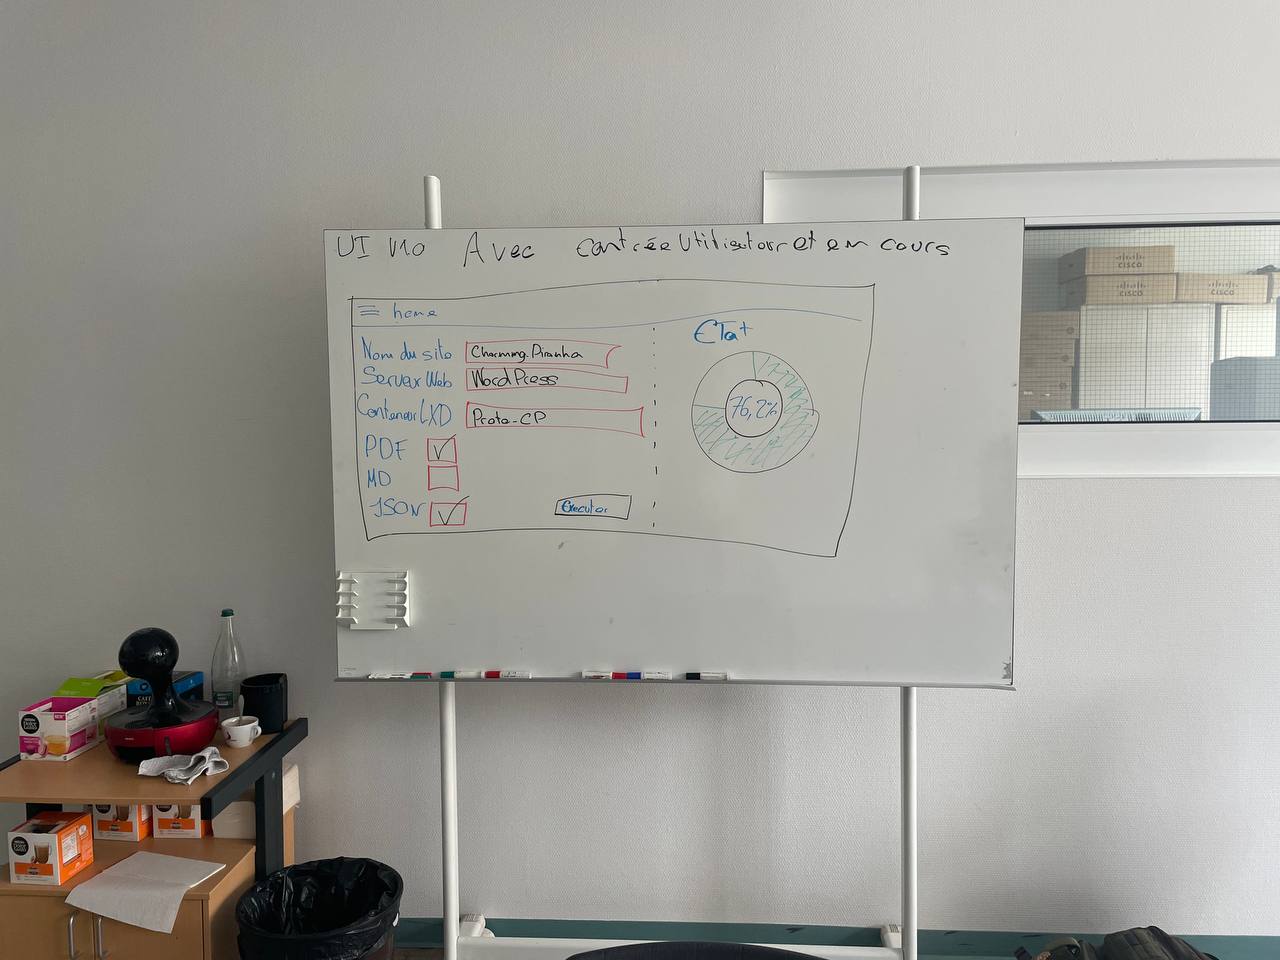 UI V10 Avec contrée Utilisateur et en cours
home
Nom du site Charming-Piranha
Serveur Web WordPress
Conteneur LXD Proto-CP
PDF
MD
JSON
Executer
ETat
76,2%
CISCO
CISCO
CISCO
NEW
NESCAFÉ
Dolce
Gusto
CAFÉ